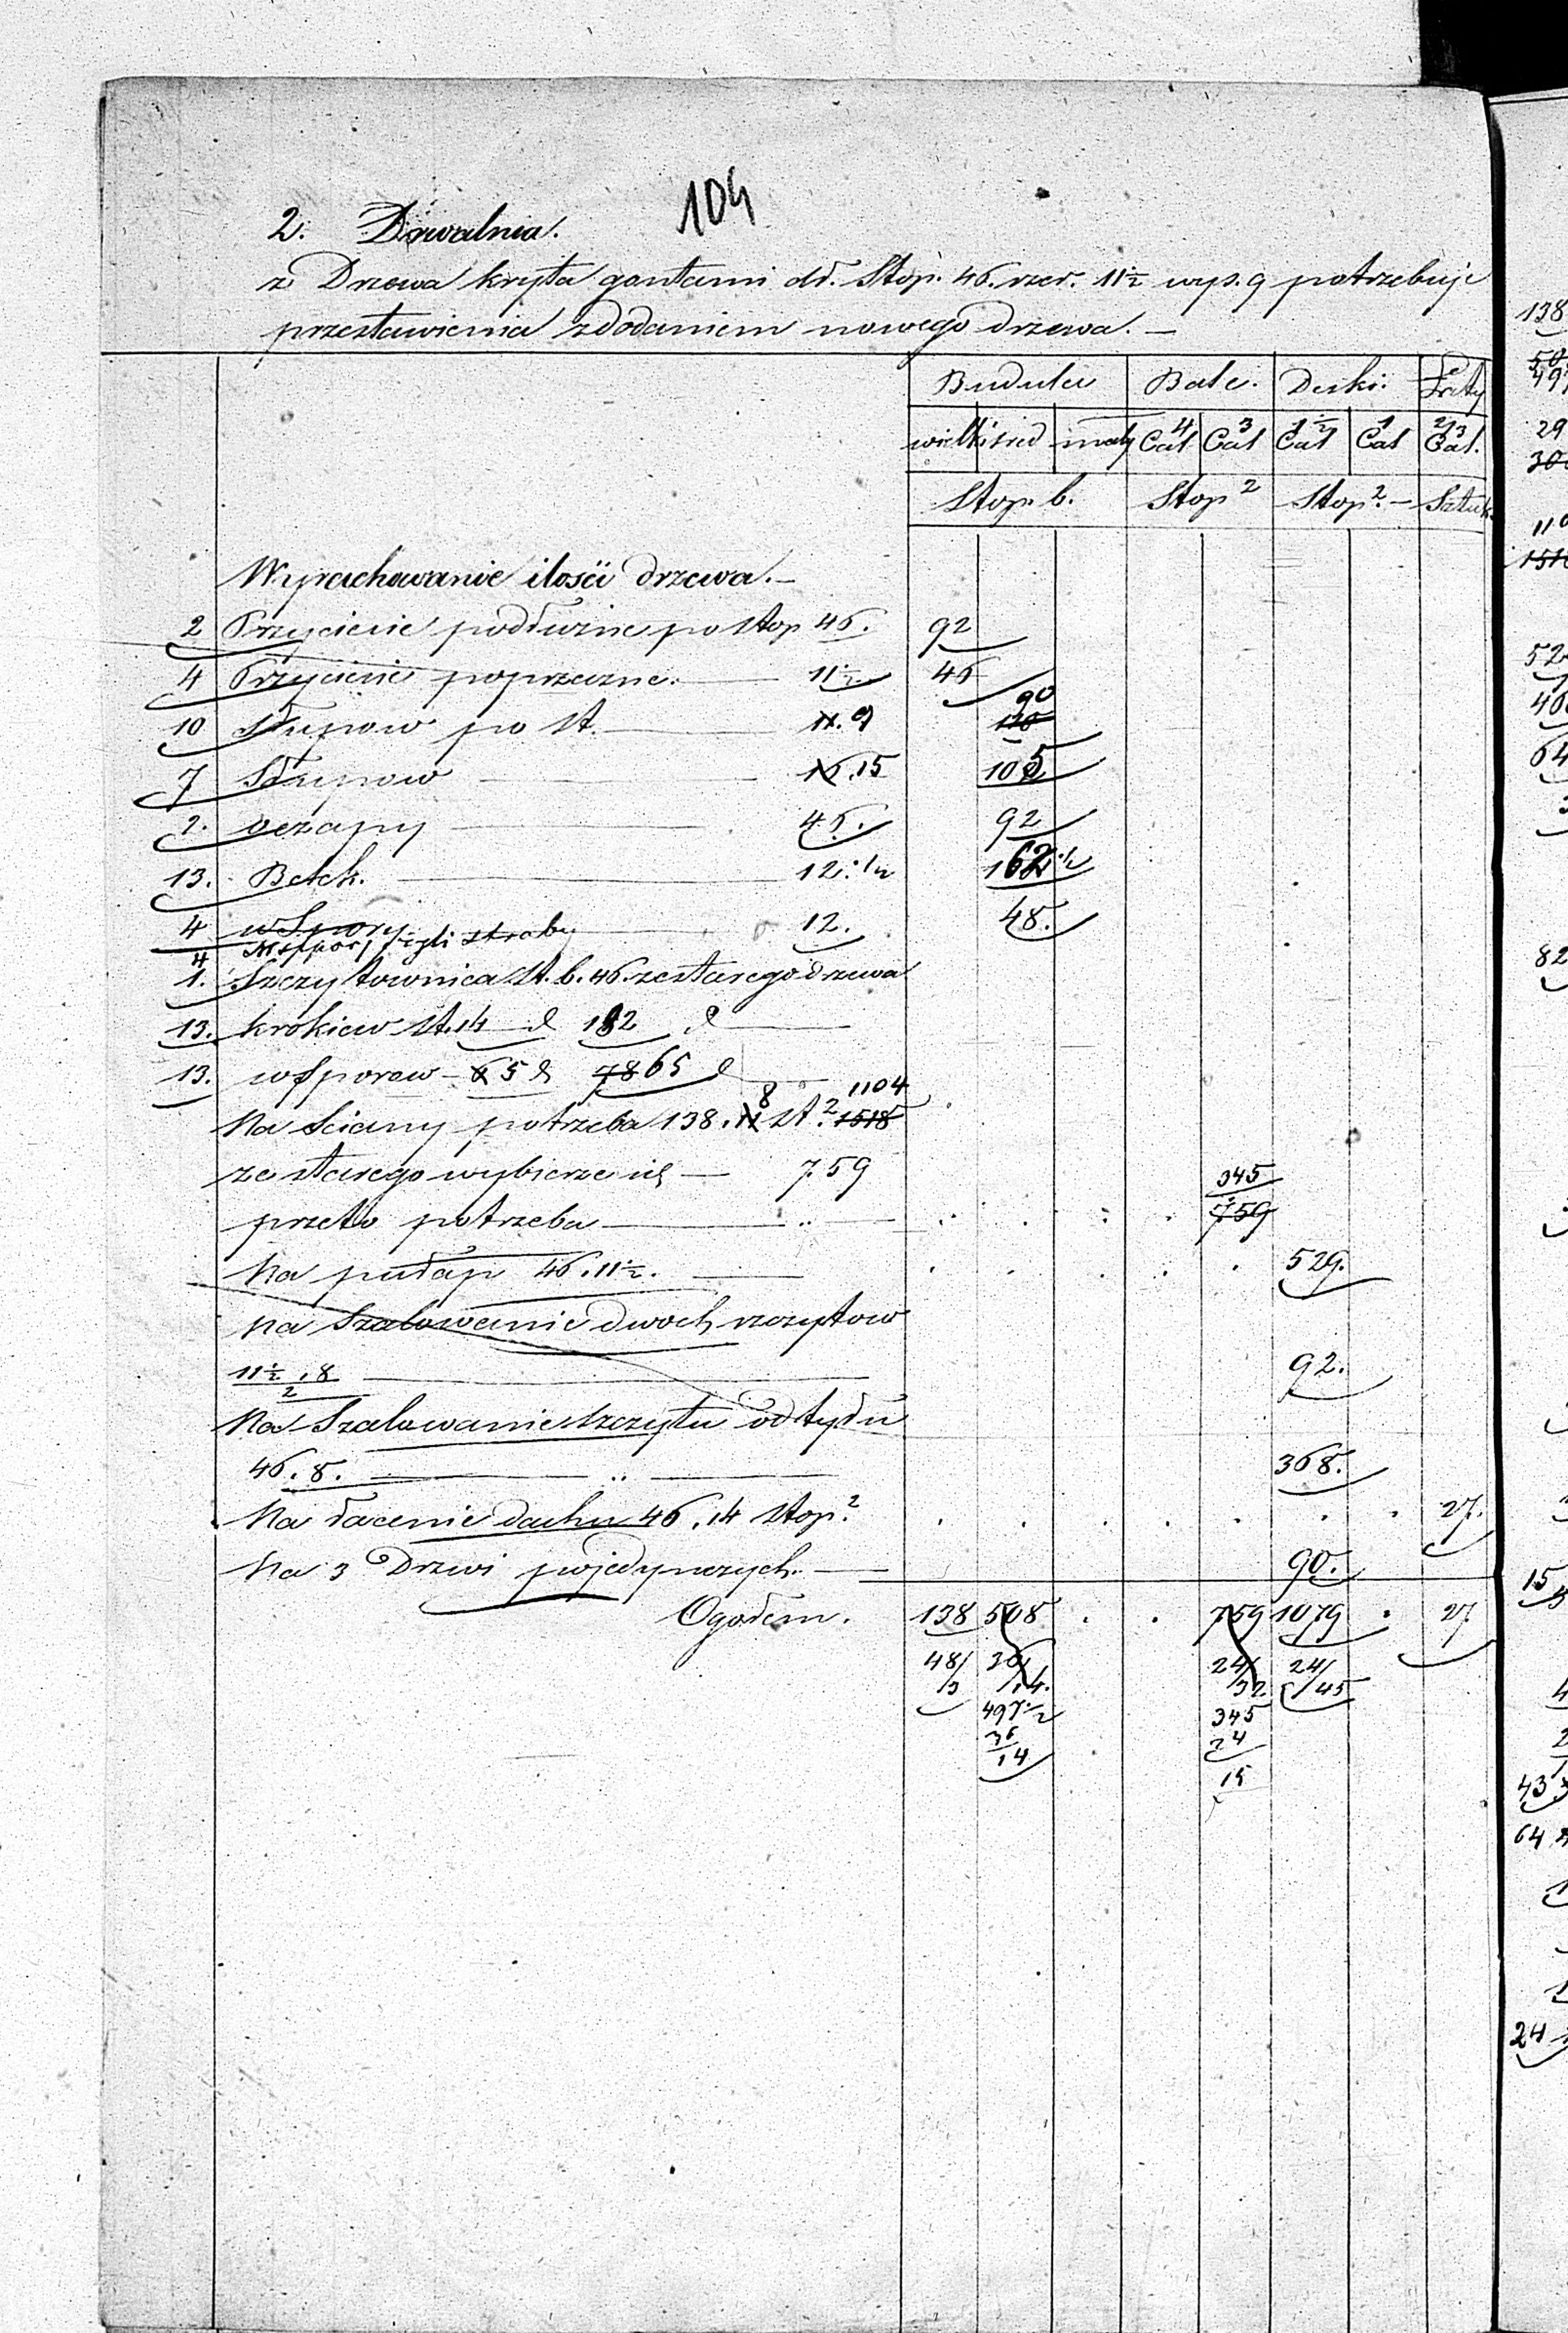 104
2. Drwalnia.
z Drzewa kryta gontami dł. Stop. 46. szer. 11½ wys. 9 potrzebuje
przestawienia z dodaniem nowego drzewa. —
Budulcu Bale. Deski. Łaty
wielki śred mały 4 Cal 3 Cal 1½ Cal 1 Cal 2/3 Cal.
Stop. b. Stop 2 Stop 2. — Sztuk
Wyrachowanie ilości drzewa. —
2 Przyciesie podłużne po stop 46. 92
4 Przyciesie poprzeczne. — 11½ 46
10 słupow po st. — 11. 9 120 90
7 Słupow — 16. 15 105
2. oczapy — 46. 92
13. Belek. — 12.½ 162.½
4 wSpory — 12. 48.
4 czyli
1. Szczytownica st. b. 46. ze starego drzewa
13. krokiew st. 14 d 182 d —
13. wsporow — 6 5 d 78 65 d —
Na Sciany potrzeba 138. 11 8 st.2 1518 1104
ze starego wybierze się — 759
przeto potrzeba — 759 345
Na pułap 46. 11½. — 529.
Na Szalowanie dwoch szczytow
11½ . 8 / 2 — 92.
Na Szalowanie szczytu od tyłu
46. 8. — 368.
Na łacenie dachu 46. 14 Stop.2 27.
Na 3 Drzwi pojedynczych. — 90.
Ogołem. 138 508 . . 759 1079 . 27
48/3 36/14. 24/32 24/45
497½ 345
36 24
14 15